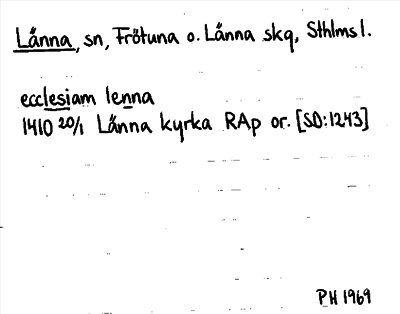 Länna, sn, Frötuna o. Länna skg, Sthlms l.
ecclesiam lenna
1410 20/1 Länna kyrka RAp or. [SD:1243]
PH 1969